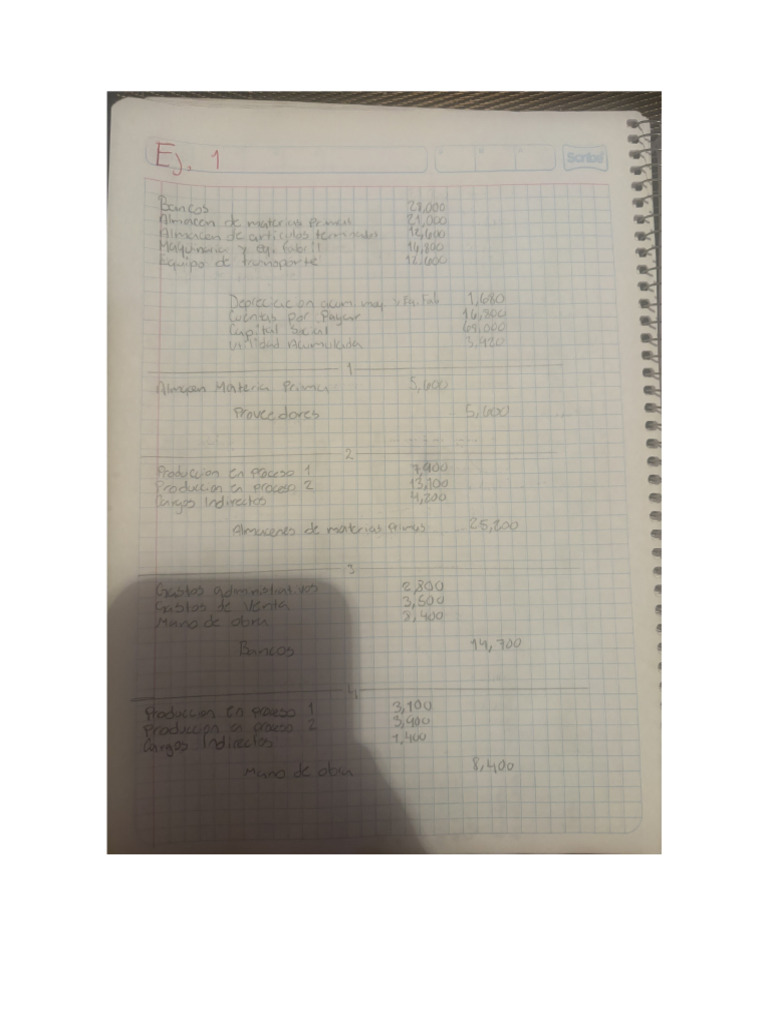 Ej. 1
Scribe
Bancos 28,000
Almacen de materias Primas 21,000
Almacen de articulos terminados 12,600
Maquinaria y eq. fabril
Equipo de transporte 12,600
Depreciacion acum. maq y Eq. Fab 1,680
Cuentas por Pagar
Capital Social
Utilidad Acumulada
1
Almacen Materia Prima 5,600
Proveedores 5,600
2
Produccion en proceso 1 7,900
Produccion en proceso 2 13,100
Cargos Indirectos 4,200
Almacenes de materias Primas 25,200
3
Gastos administrativos 2,800
Gastos de Venta 3,500
Mano de obra 8,400
Bancos 14,700
4
Produccion en proceso 1 3,100
Produccion en proceso 2 3,900
Cargos Indirectos 1,400
Mano de obra 8,400